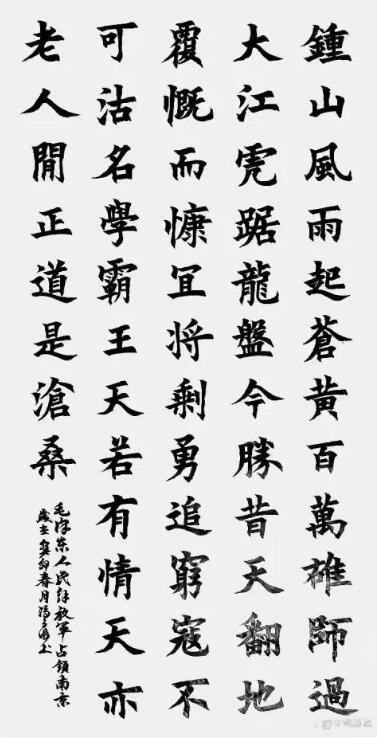 鍾山風雨起蒼黃百萬雄師過
大江虎踞龍盤今勝昔天翻地
覆慨而慷冝将剩勇追窮寇不
可沽名學霸王天若有情天亦
老人閒正道是滄桑
毛泽东人民解放軍占領南京
歲在癸卯春月